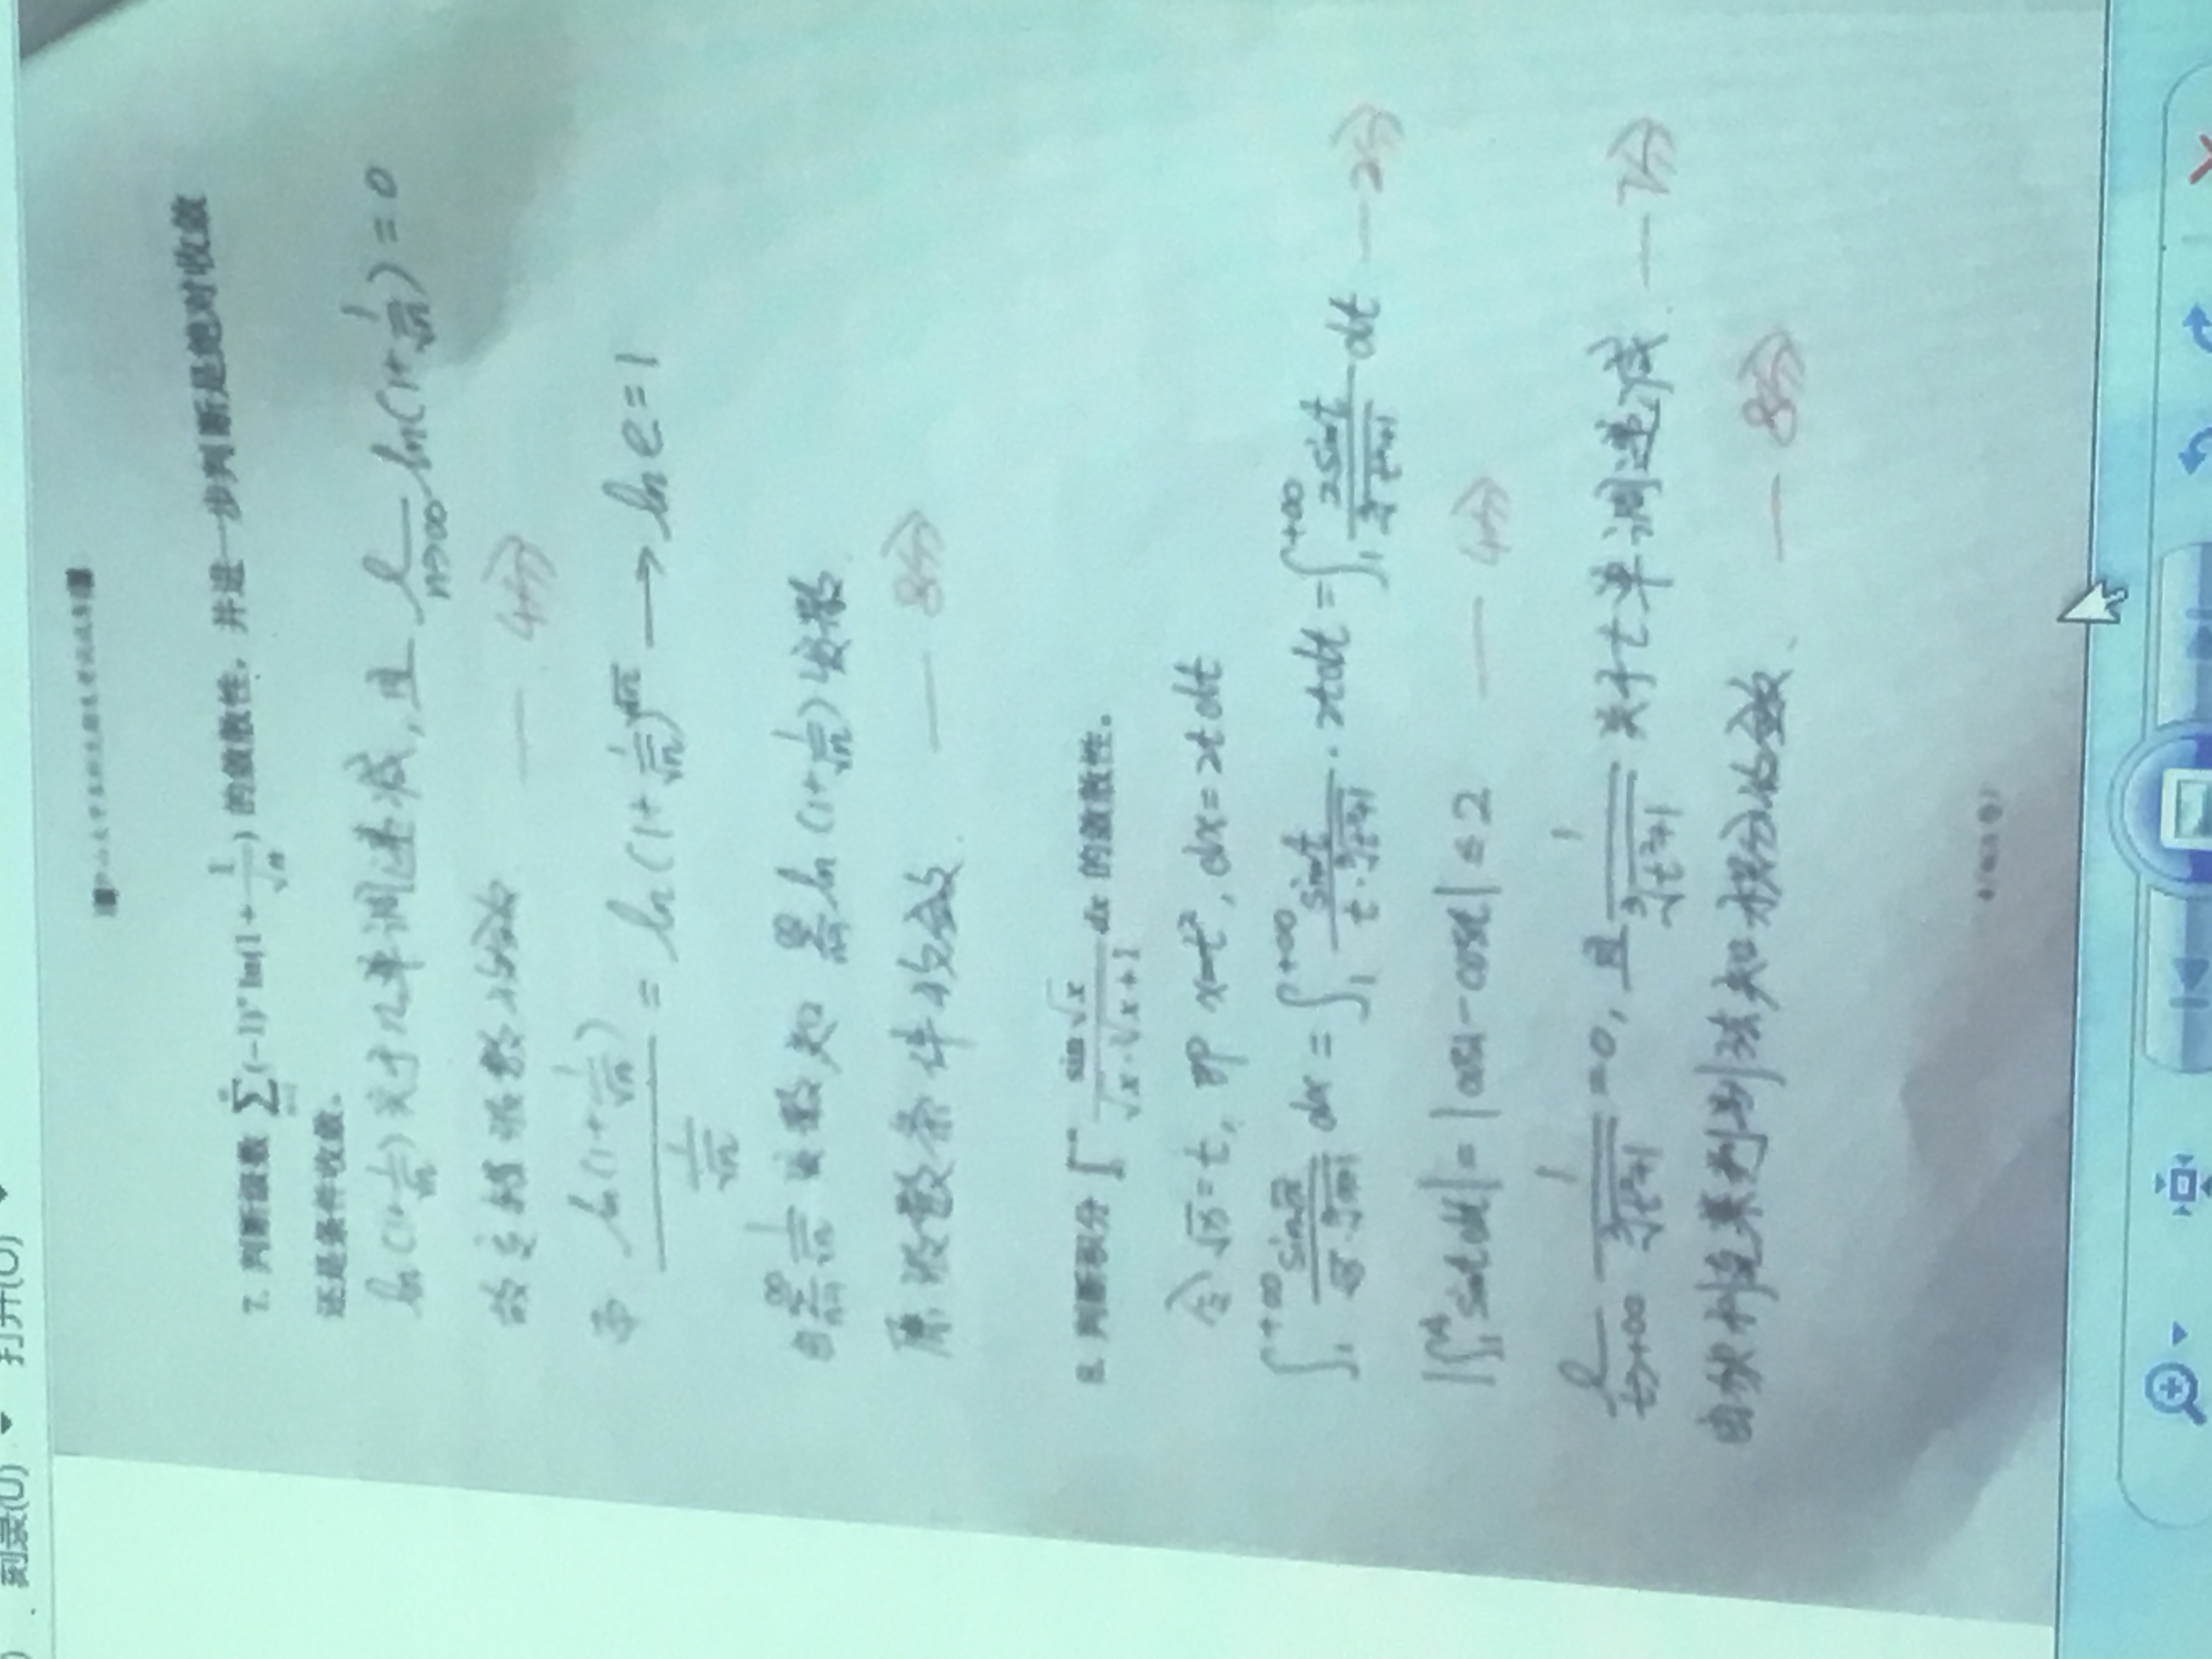 刻录(U) 打开(O)
7. 判断级数 $\sum_{n=1}^{\infty}(-1)^n \ln(1+\frac{1}{\sqrt{n}})$ 的敛散性，并进一步判断是绝对收敛
还是条件收敛。
$\ln(1+\frac{1}{\sqrt{n}})$ 关于n单调递减, 且 $\lim_{n\to\infty} \ln(1+\frac{1}{\sqrt{n}})=0$
故交错级数收敛 — 4分
而 $\frac{\ln(1+\frac{1}{\sqrt{n}})}{\frac{1}{\sqrt{n}}} = \ln(1+\frac{1}{\sqrt{n}})^{\sqrt{n}} \longrightarrow \ln e=1$
由 $\sum_{n=1}^{\infty}\frac{1}{\sqrt{n}}$ 发散知 $\sum_{n=1}^{\infty}\ln(1+\frac{1}{\sqrt{n}})$ 发散.
原级数条件收敛. — 8分
8. 判断积分 $\int \frac{\sin\sqrt{x}}{\sqrt{x}\cdot\sqrt[3]{x+1}}dx$ 的敛散性。
令 $\sqrt{x}=t$, 即 $x=t^2$, $dx=2tdt$
$\int_1^{+\infty}\frac{\sin\sqrt{x}}{\sqrt{x}\cdot\sqrt[3]{x+1}}dx = \int_1^{+\infty}\frac{\sin t}{t\cdot\sqrt[3]{t^2+1}}\cdot 2tdt = \int_1^{+\infty}\frac{2\sin t}{\sqrt[3]{t^2+1}}dt$ — 2分
$|\int_1^A \sin t dt| = |\cos 1-\cos A| \le 2$ — 4分
$\lim_{t\to+\infty}\frac{1}{\sqrt[3]{t^2+1}}=0$, 且 $\frac{1}{\sqrt[3]{t^2+1}}$ 关于t单调递减. — 7分
由狄利克莱判别法知积分收敛. — 8分